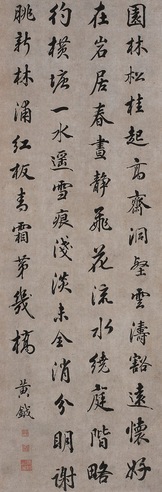 園林松桂起高齋洞壑雲濤豁遠懷好
在岩居春晝靜飛花流水繞庭階略
彴橫塘一水遥雪痕淺淡未全消分明謝
眺新林浦紅板青霜第幾橋
黄鉞